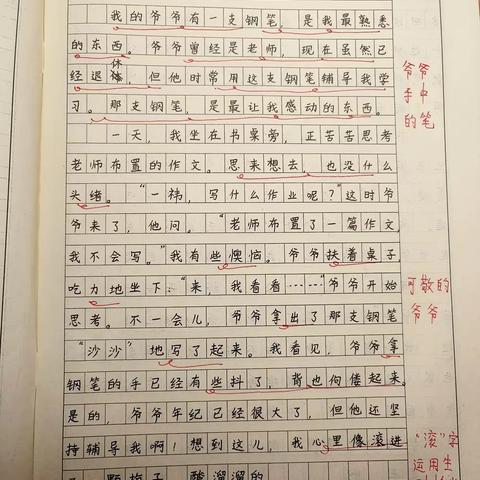 我的爷爷有一支钢笔，是我最熟悉
的东西。爷爷曾经是老师，现在虽然已
经退休，但他时常用这支钢笔辅导我学
习。那支钢笔，是最让我感动的东西。
一天，我坐在书桌旁，正苦苦思考
老师布置的作文。思来想去，也没什么
头绪。“一祎，写什么作业呢？”这时爷
爷来了，他问。“老师布置了一篇作文，
我不会写。”我有些懊恼。爷爷扶着桌子
吃力地坐下：“来，我看看……”爷爷开始
思考。不一会儿，爷爷拿出了那支钢笔
“沙沙”地写了起来。我看见，爷爷拿
钢笔的手已经有些抖了，背也佝偻起来。
是的，爷爷年纪已经很大了，但他还坚
持辅导我啊！想到这儿，我心里像滚进
了一颗梅子，酸溜溜的
爷爷
手中
的笔
可敬的
爷爷
“滚”字
运用生